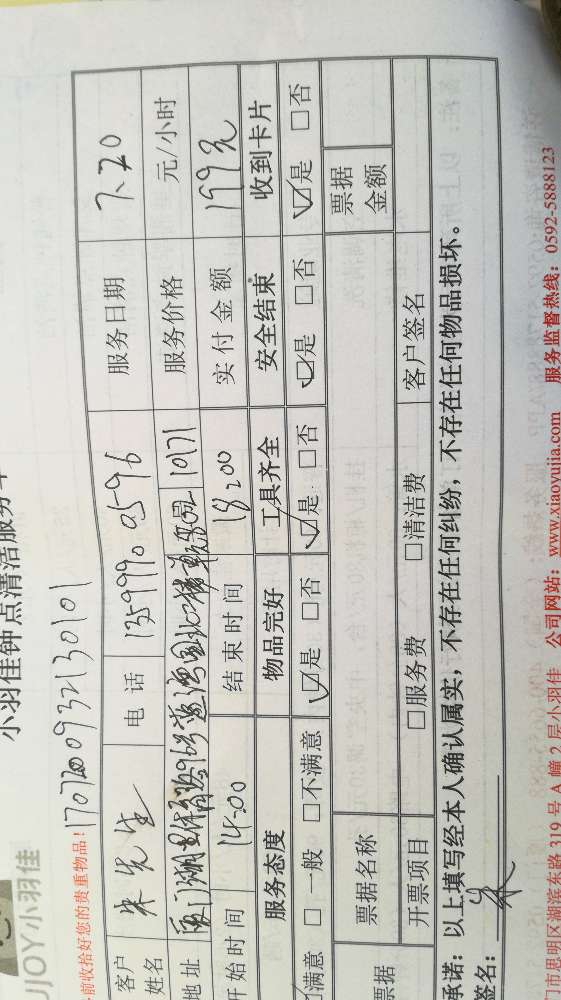 小羽佳钟点清洁服务卡
JJOY小羽佳
前收拾好您的贵重物品!
1707200932130101
客户姓名 朱先生 电话 13599900596 服务日期 7.20
地址 10171 服务价格 元/小时
开始时间 14:00 结束时间 18:00 实付金额 199元
服务态度 物品完好 工具齐全 安全结束 收到卡片
满意 □一般 □不满意 ☑是 □否 ☑是 □否 ☑是 □否 ☑是 □否
票据 票据名称 票据金额
开票项目 □服务费 □清洁费 客户签名
承诺:以上填写经本人确认属实,不存在任何纠纷,不存在任何物品损坏。
签名: 朱
门市思明区湖滨东路 319 号 A 幢 2 层小羽佳 公司网站:www.xiaoyujia.com 服务监督热线:0592-5888123